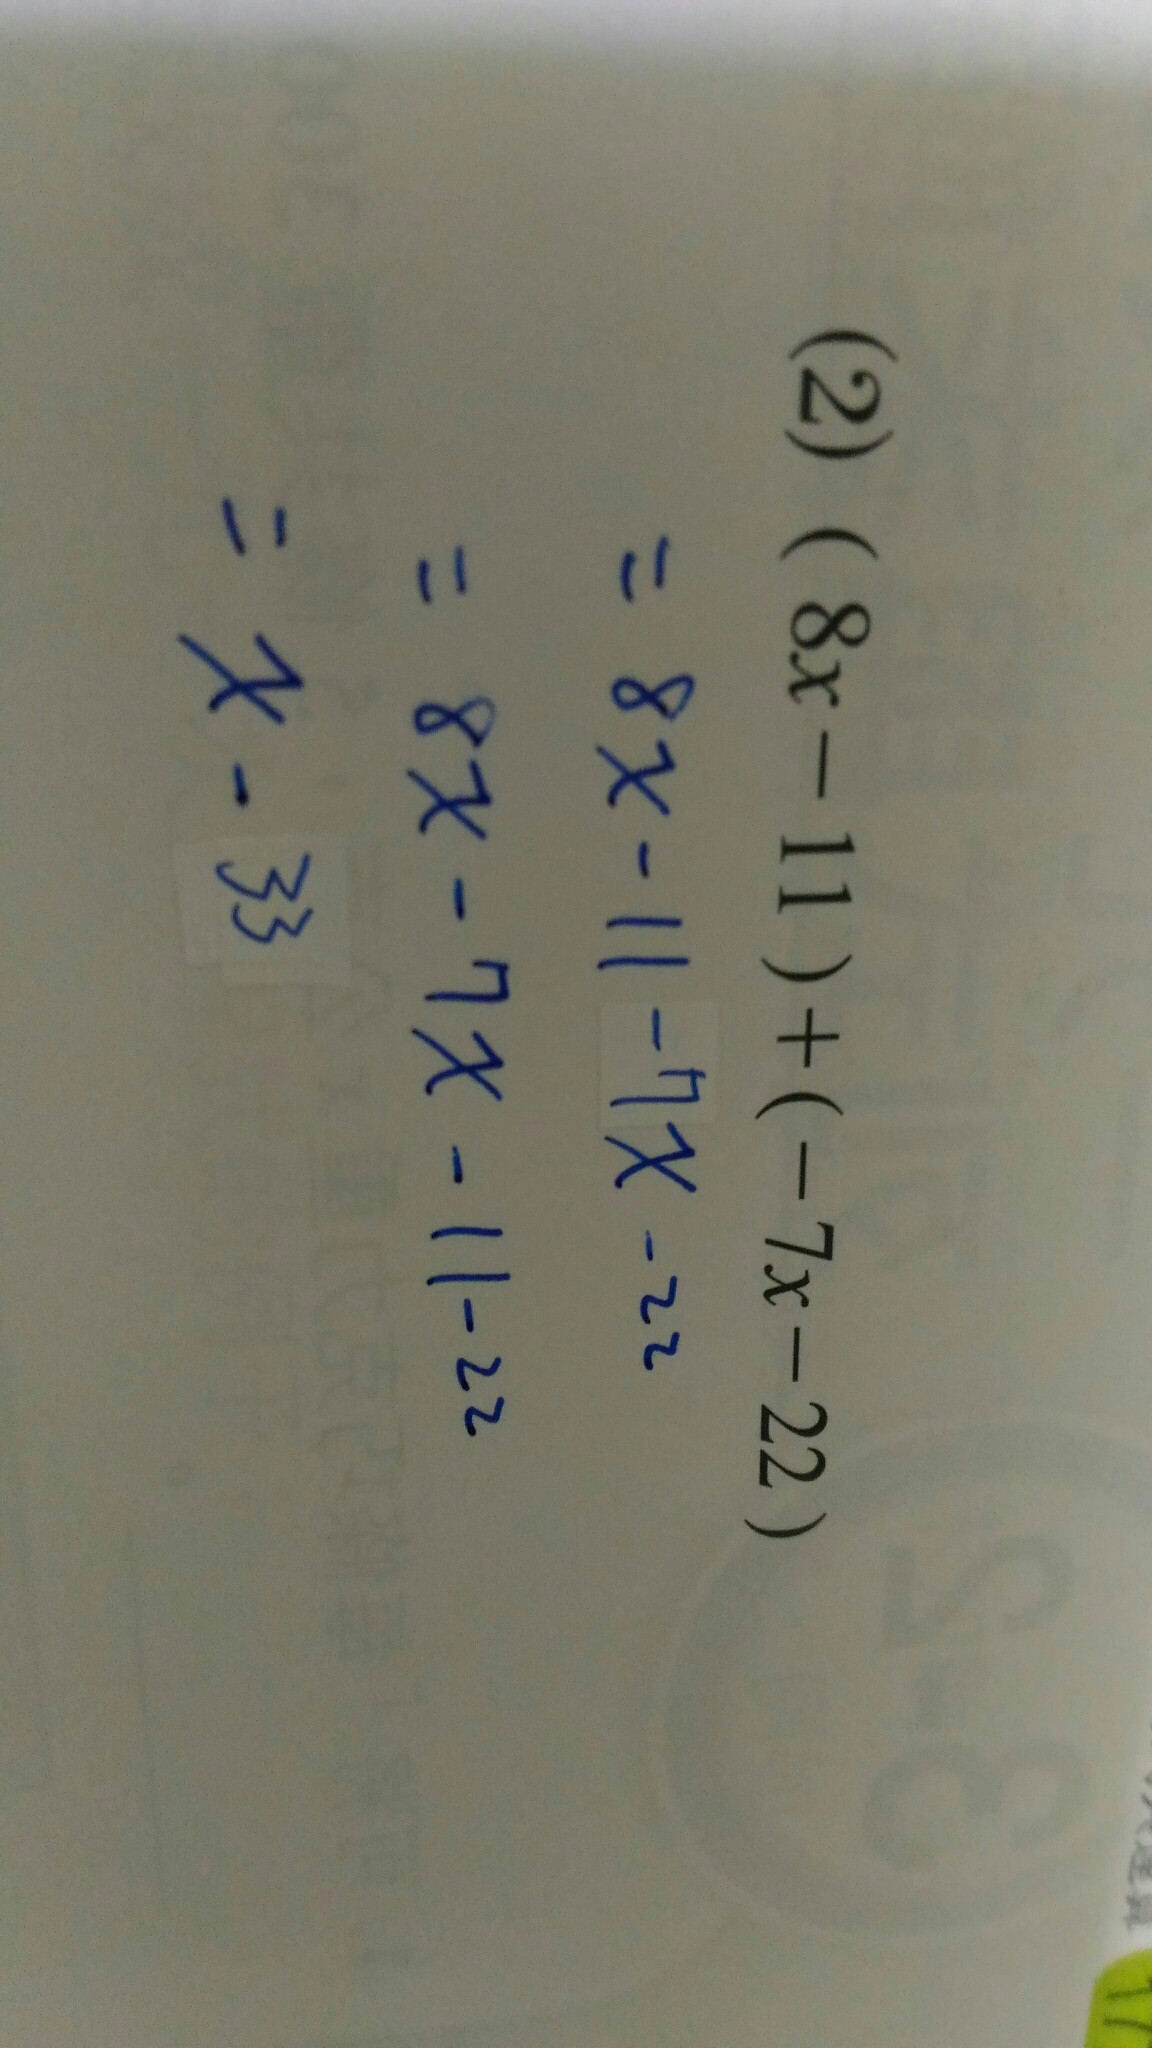 (2) (8x－11)+(－7x－22)
= 8x - 11 - 7x - 22
= 8x - 7x - 11 - 22
= x - 33